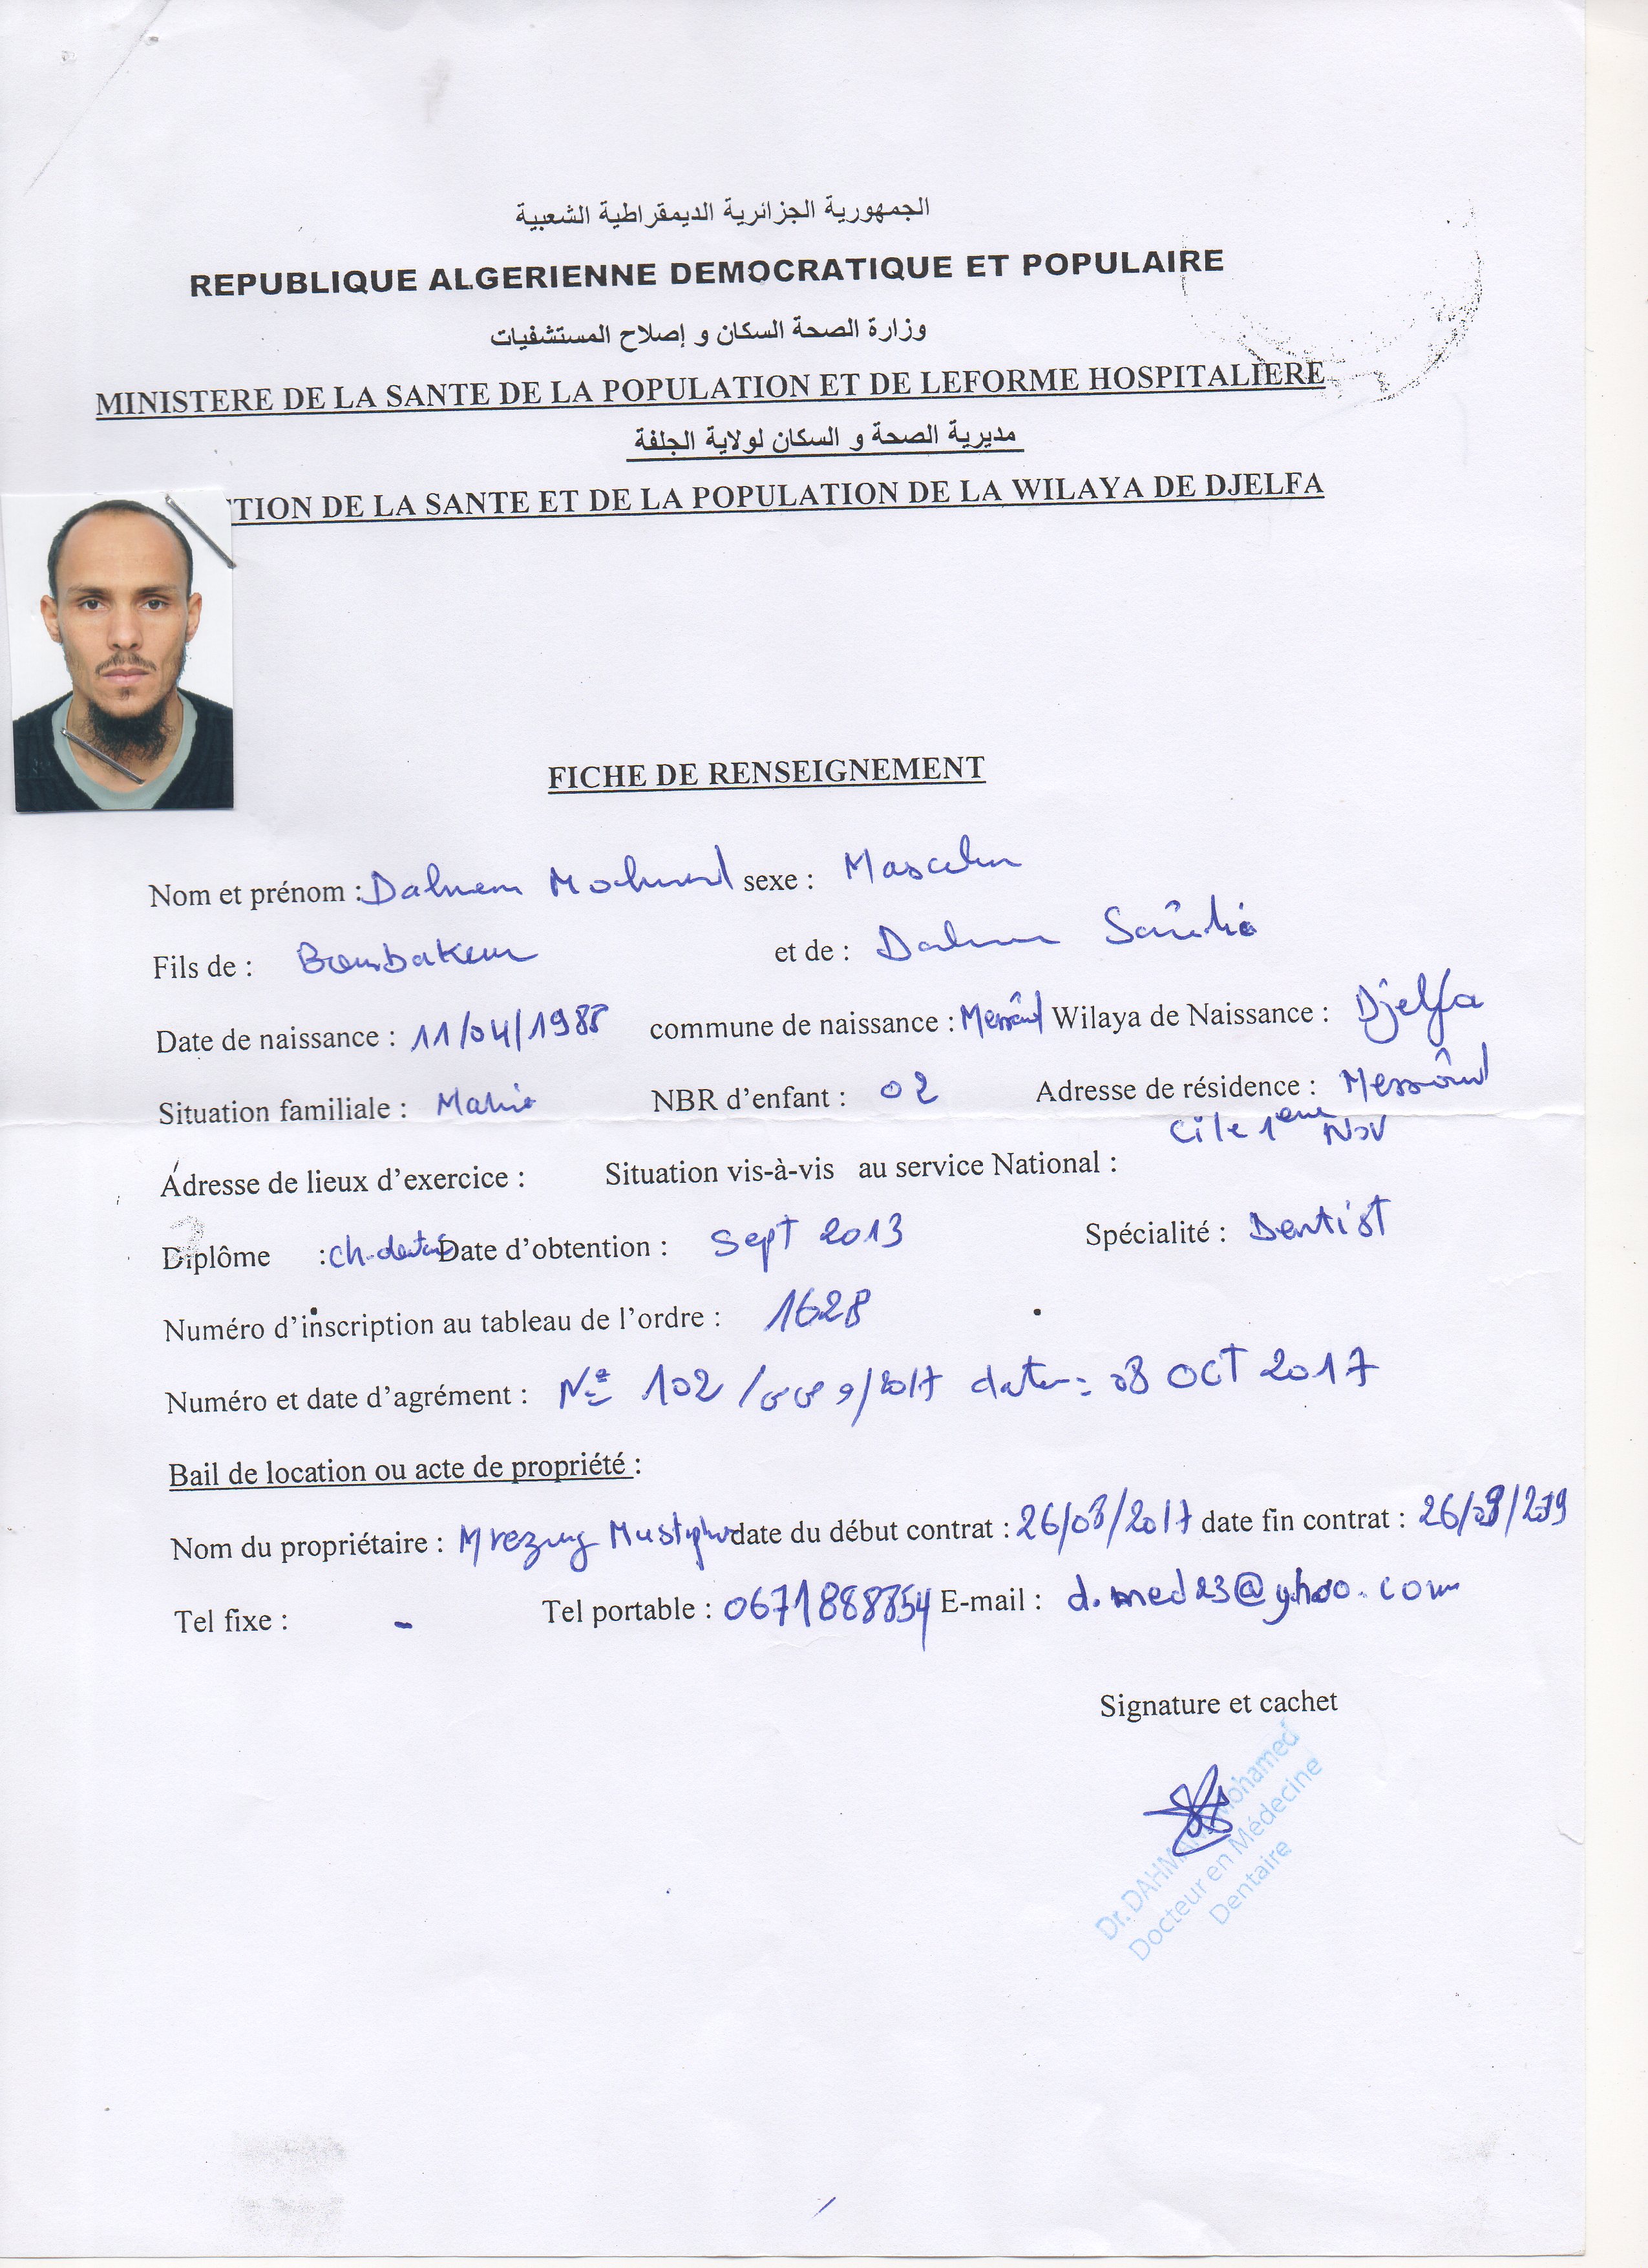 الجمهورية الجزائرية الديمقراطية الشعبية
REPUBLIQUE ALGERIENNE DEMOCRATIQUE ET POPULAIRE
وزارة الصحة السكان و إصلاح المستشفيات
MINISTERE DE LA SANTE DE LA POPULATION ET DE LEFORME HOSPITALIERE
مديرية الصحة و السكان لولاية الجلفة
TION DE LA SANTE ET DE LA POPULATION DE LA WILAYA DE DJELFA
FICHE DE RENSEIGNEMENT
Nom et prénom : sexe : Masculin
Fils de : Boubakeur et de :
Date de naissance : 11/04/1988 commune de naissance : Messâad Wilaya de Naissance : Djelfa
Situation familiale : Marié NBR d'enfant : 02 Adresse de résidence : Messâad
Cite 1er Nov
Adresse de lieux d'exercice : Situation vis-à-vis au service National :
Diplôme : ch-dentaire Date d'obtention : Sept 2013 Spécialité : Dentist
Numéro d'inscription au tableau de l'ordre : 1628
Numéro et date d'agrément : N° 102 / 2017 08 OCT 2017
Bail de location ou acte de propriété :
Nom du propriétaire : Mrezug Mustapha date du début contrat : 26/03/2017 date fin contrat :
Tel fixe : - Tel portable : 0671888854 E-mail : d.med23@yhoo.com
Signature et cachet
Dr. DAHMANE Mohamed
Docteur en Médecine
Dentaire